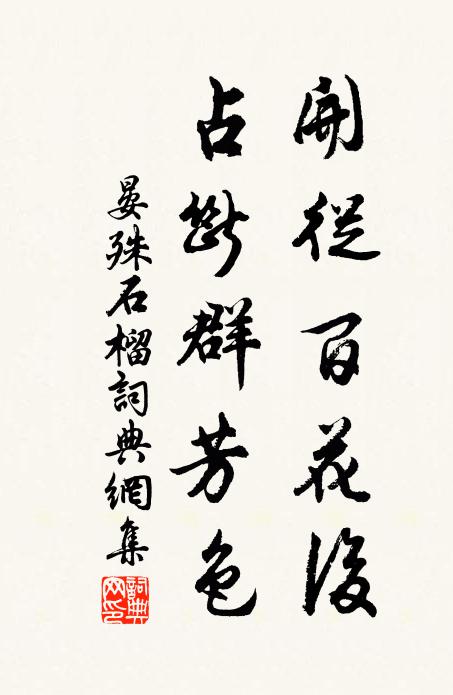 開從百花後
占斷群芳色
晏殊石榴詞典網集
詞典網印